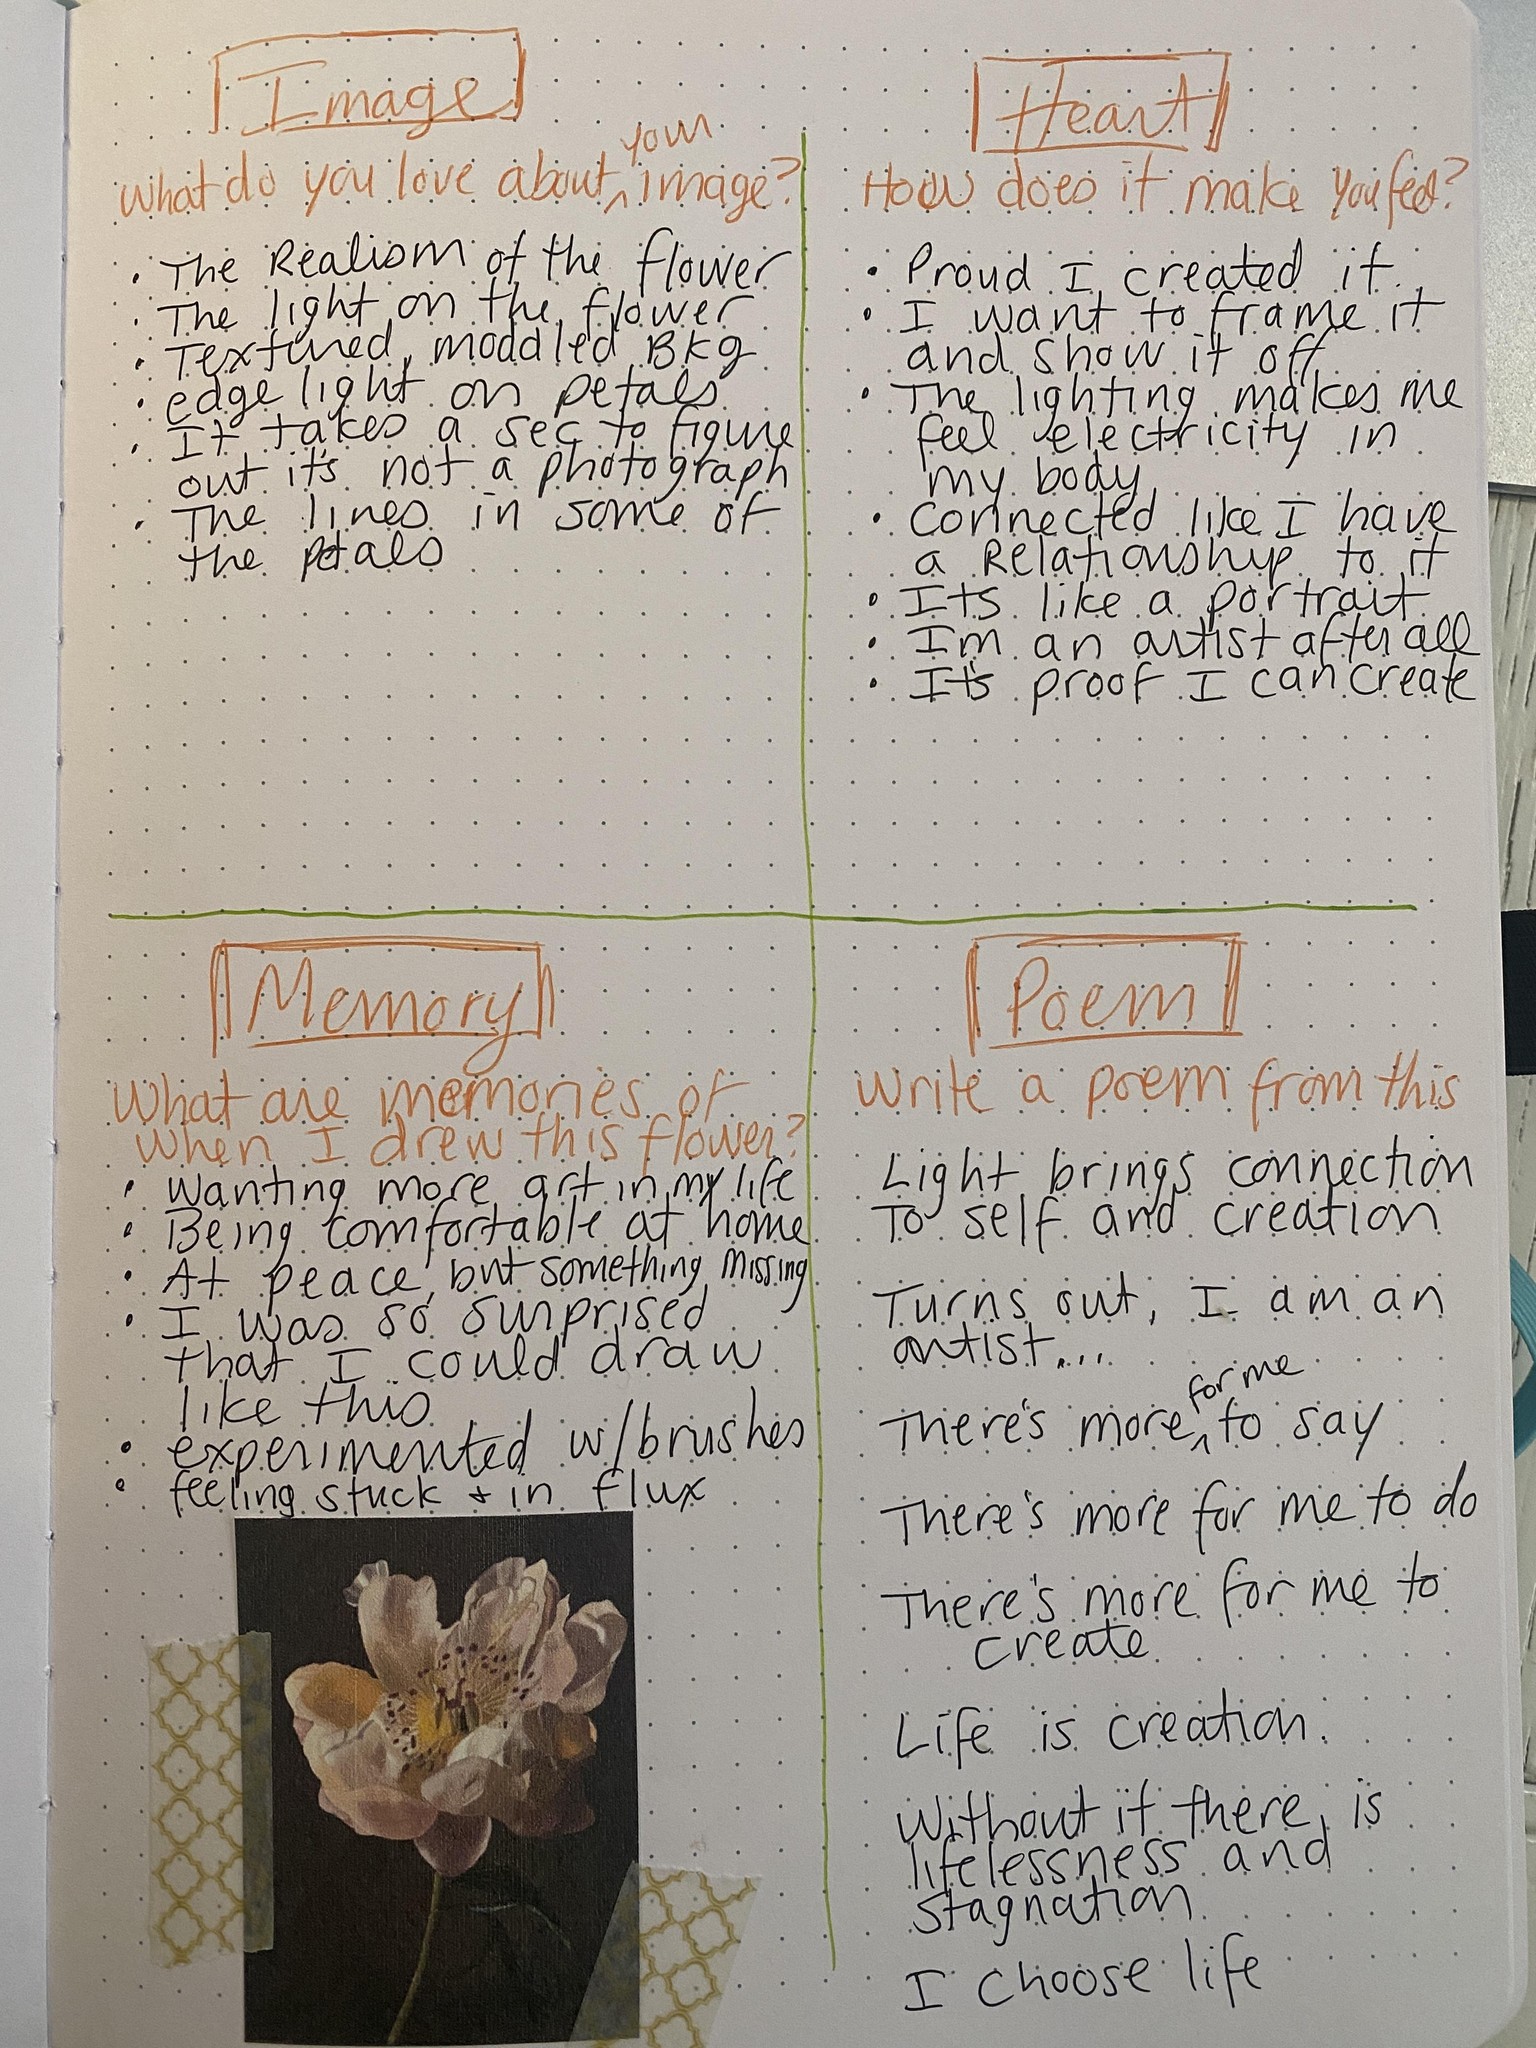 Image
What do you love about your image?
• The Realism of the flower
• The light on the flower
• Textured, moddled Bkg
• edge light on petals
• It takes a sec to figure
out it's not a photograph
• The lines in some of
the petals
Heart
How does it make you feel?
• Proud I created it
• I want to frame it
and show it off
• The lighting makes me
feel electricity in
my body
• Connected like I have
a Relationship to it
• Its like a portrait
• Im an artist after all
• It's proof I can create
Memory
What are memories of
when I drew this flower?
• Wanting more art in my life
• Being comfortable at home
• At peace, but something missing
• I was so surprised
that I could draw
like this
• experimented w/brushes
• feeling stuck + in flux
Poem
Write a poem from this
Light brings connection
To self and creation
Turns out, I am an
artist...
There's more for me to say
There's more for me to do
There's more for me to
create
Life is creation.
Without it there is
lifelessness and
stagnation
I choose life